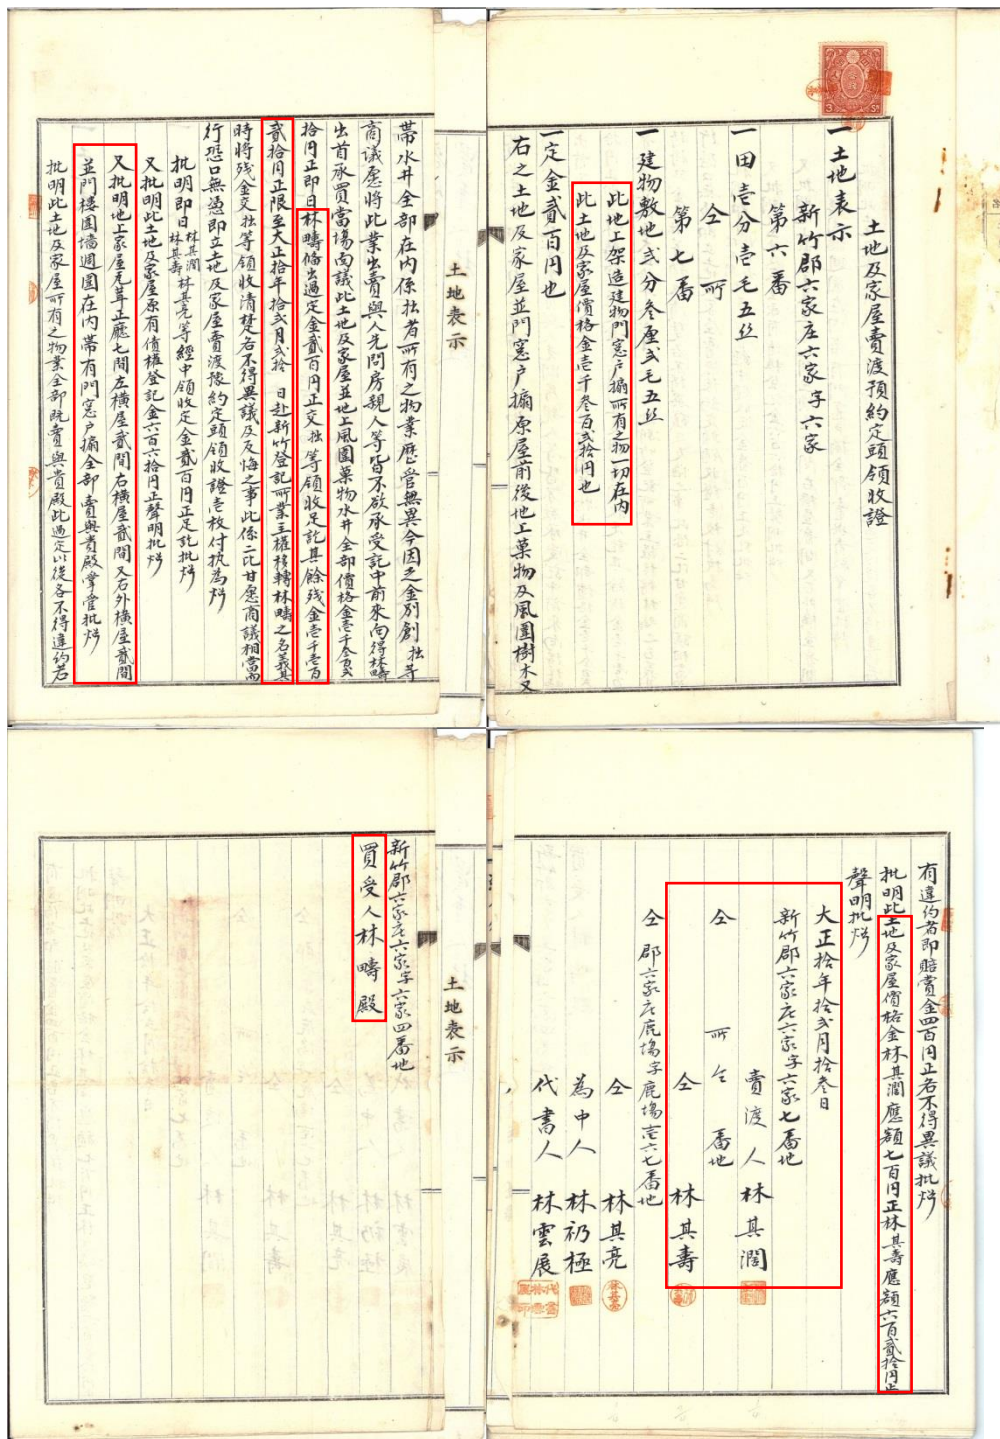 土地及家屋賣渡預約定頭領收證
一土地表示
新竹郡六家庄六家字六家
第六番
一田壱分壱毛五丝
仝所
第七番
一建物敷地弍分叁厘弍毛五丝
此地上架造建物門窓户搧所有之物一切在内
此土地及家屋價格金壱千叁百弍拾円也
一定金貳百円也
右之土地及家屋並門窓户搧原屋前後地上菓物及風圍樹木又
土地表示
帶水井全部在内係拙者所有之物業歷管無異今因乏金別創拙等
商議愿將此業出賣與人先問房親人等皆不欲承受託中前來向得林疇
出首承買當塲面議此土地及家屋並地上風圍菓物水井全部價格金壱千叁百弍
拾円正即日林疇備出過定金貳百円正交拙等領收足訖其餘残金壱千壱百
貳拾円正限至大正拾年拾弍月弍拾 日赴新竹登記所業主權移轉林疇之名義其
時將残金交拙等領收清楚各不得異議及反悔之事此係二比甘愿商議相當而
行恐口無憑即立土地及家屋賣渡豫約定頭領收證壱枚付执為炤
批明即日林其潤林其壽林其亮等經中領收定金貳百円正足訖批炤
又批明此土地及家屋原有債權登記金六百六拾円正聲明批炤
又批明地上家屋瓦茸正廳七間左橫屋貳間右橫屋貳間又右外橫屋貳間
並門樓圍墻週圍在内帶有門窓户搧全部賣與貴殿掌管批炤
批明此土地及家屋所有之物業全部既賣與貴殿此過定以後各不得違約若
有違約者即賠賞金四百円正各不得異議批炤
批明此土地及家屋價格金林其潤應額七百円正林其壽應額六百貳拾円正
聲明批炤
大正拾年拾弍月拾叁日
新竹郡六家庄六家字六家七番地
賣渡人林其潤
仝所仝番地
仝林其壽
仝郡六家庄鹿塲字鹿塲壱六七番地
仝林其亮
為中人林礽極
代書人林雲展
土地表示
新竹郡六家庄六家字六家四番地
買受人林疇殿